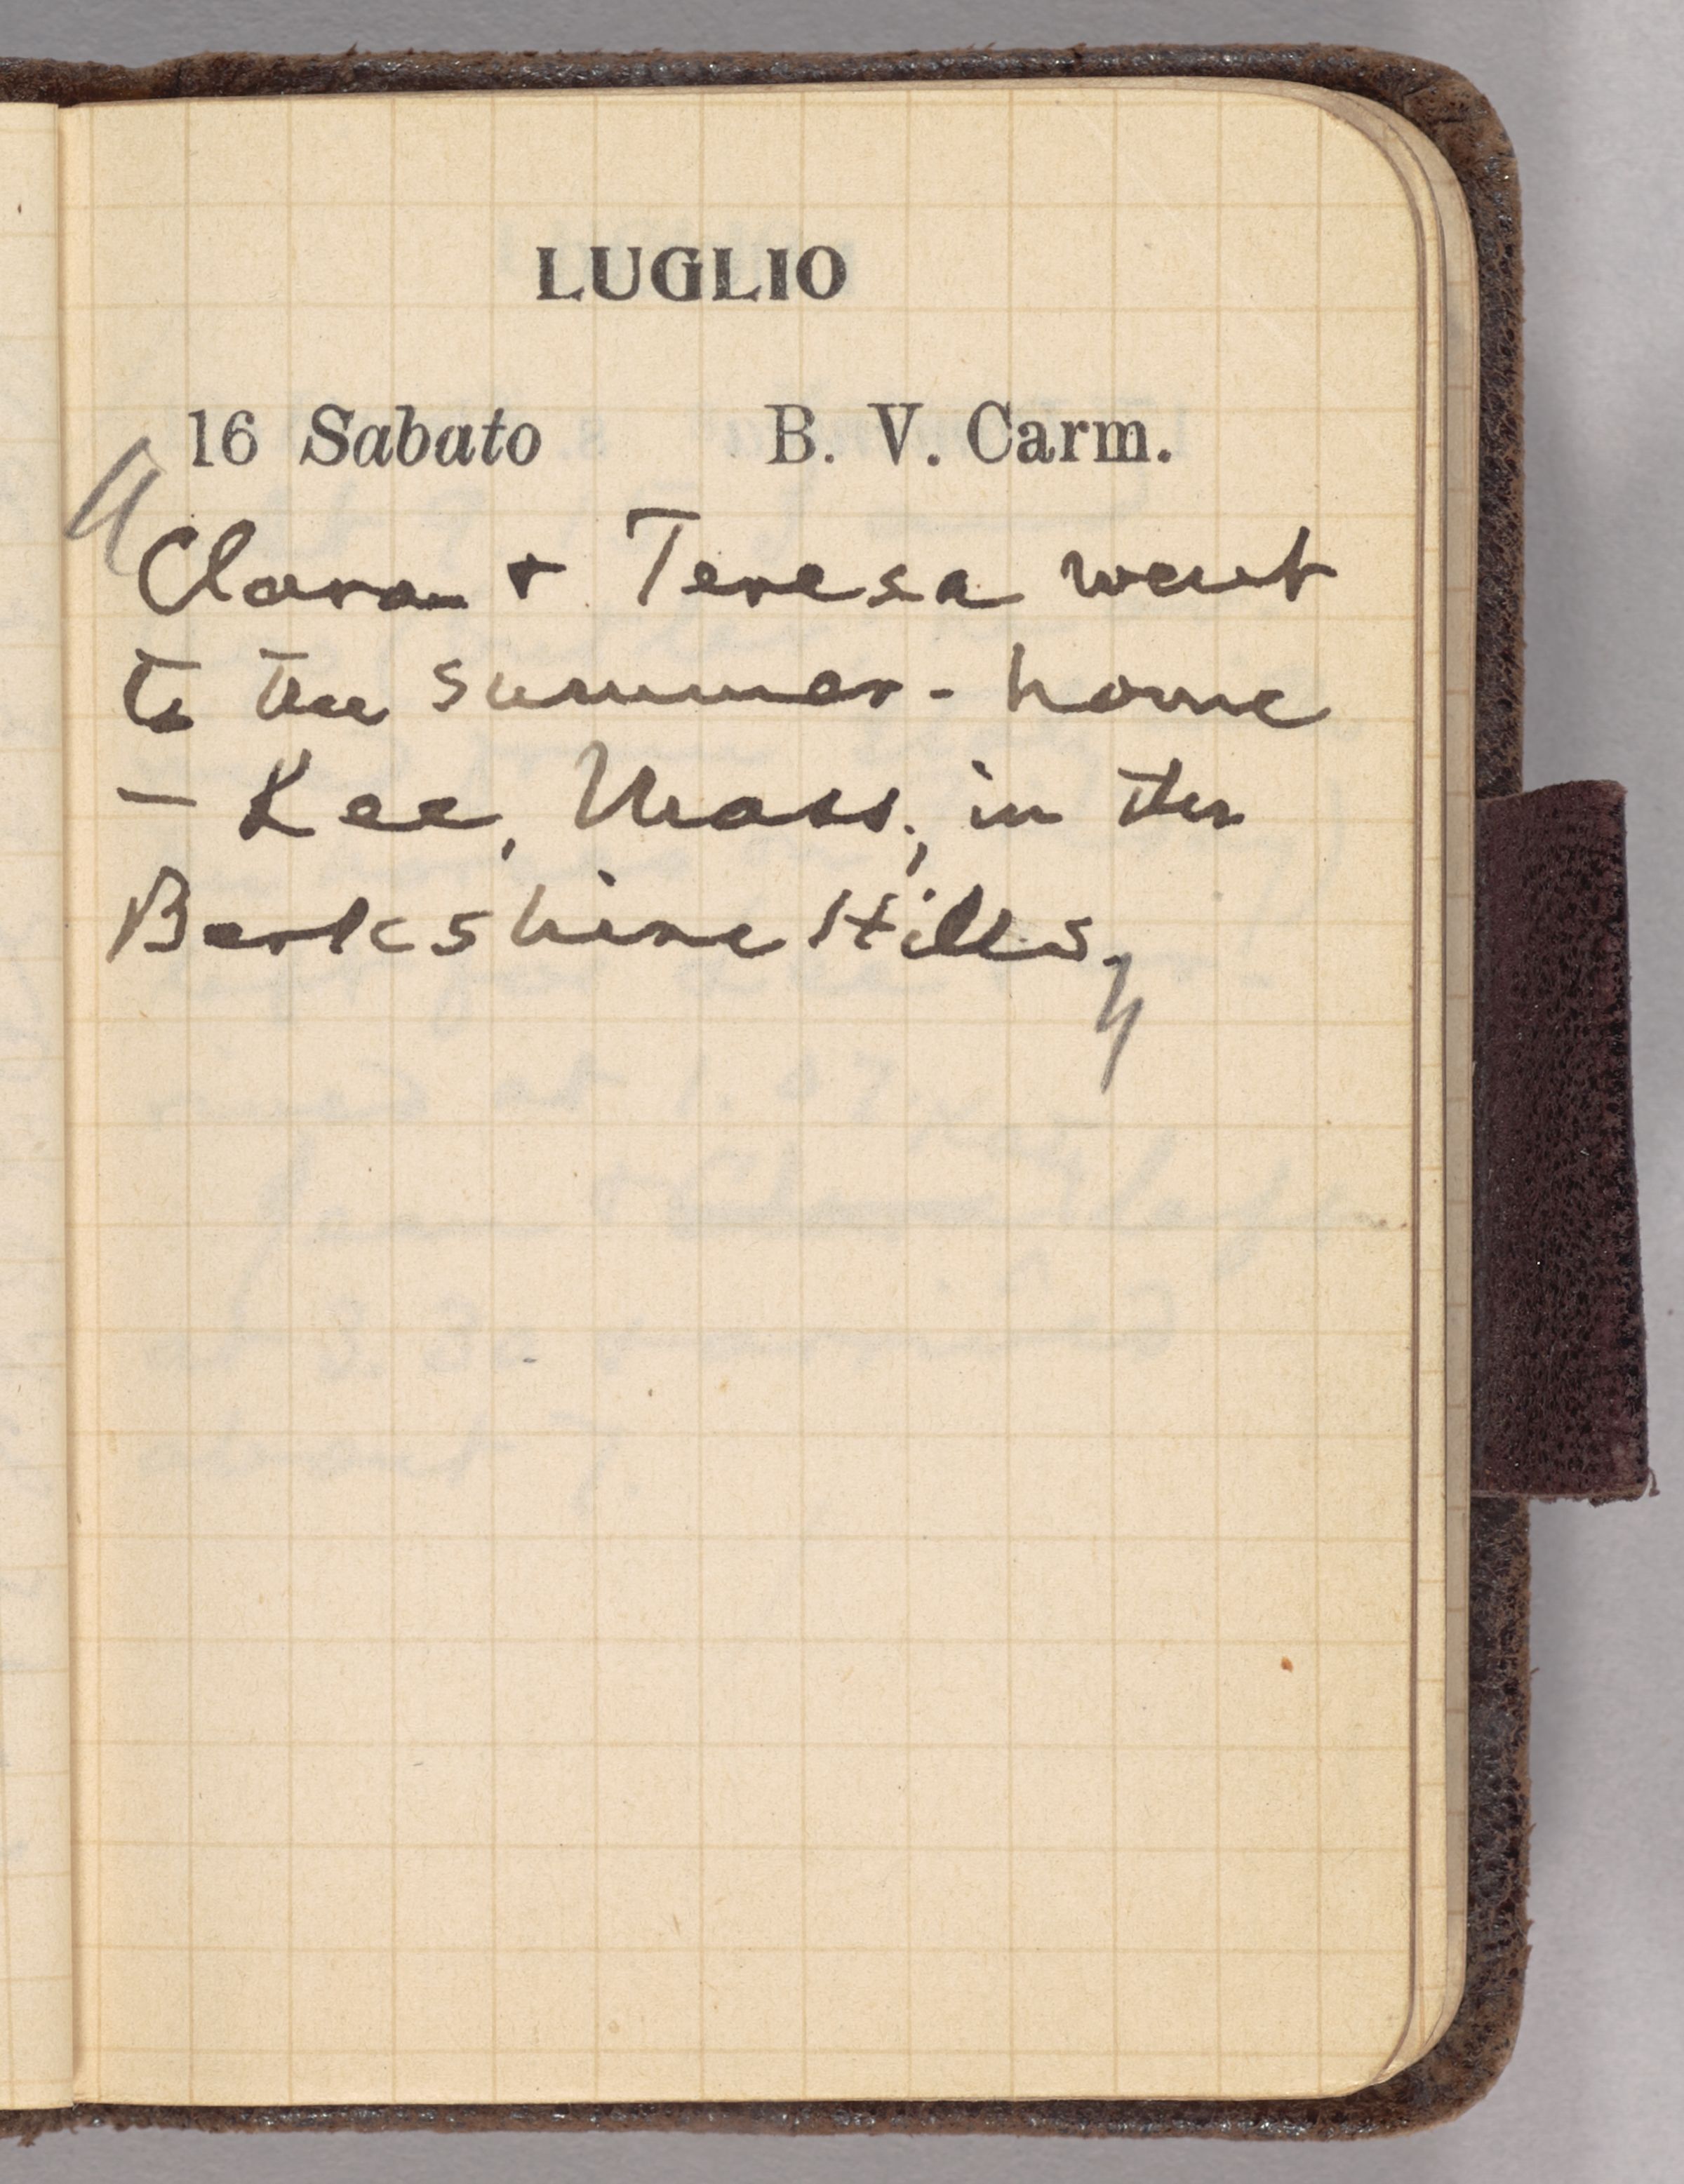 LUGLIO
16 Sabato B. V. Carm.
"Clara + Teresa went
to the summer-home
— Lee, Mass., in the
Berkshire Hills."